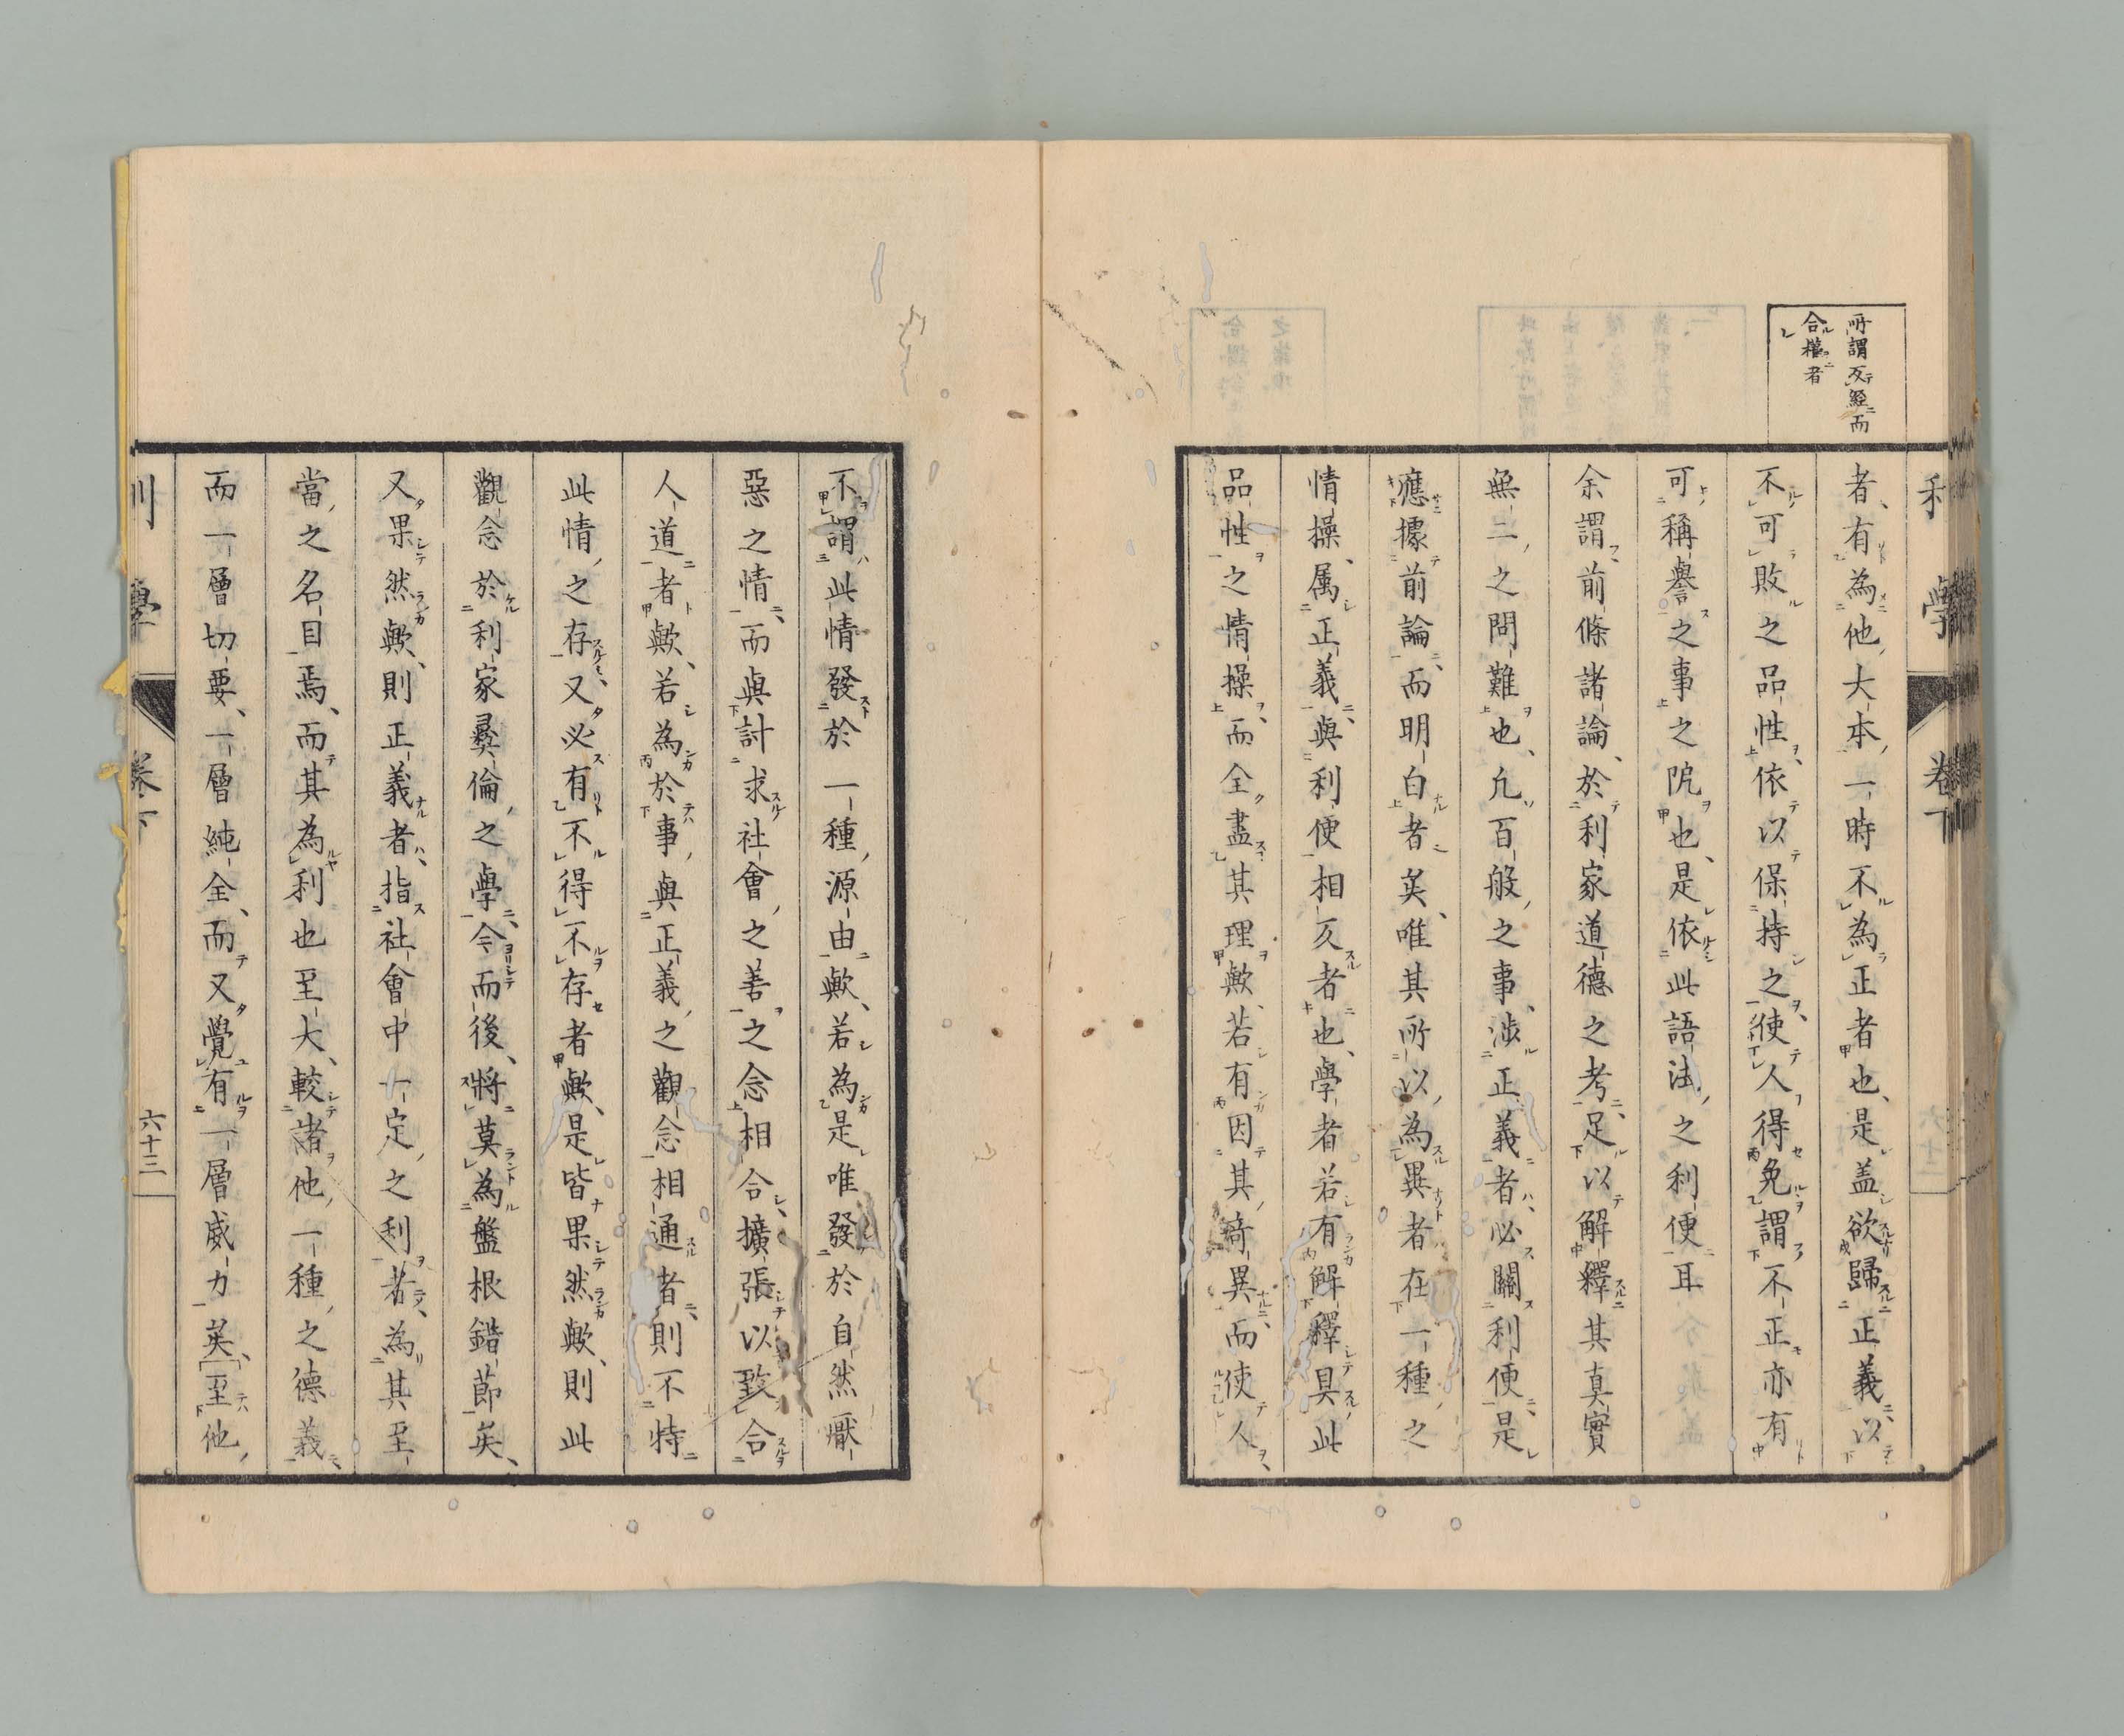 所謂反經而
合權者
者、有為他大本、一時不為正者也、是盖欲歸正義、以
不可敗之品性、依以保持之、使人得免謂不正亦有
可稱譽之事之阬也、是依此語法之利便耳
余謂前條諸論、於利家道德之考、足以解釋其真實
無二之問難也、凢百般之事、涉正義者、必關利便、是
應據前論、而明白者矣、唯其所以為異者在一種之
情操、属正義、與利便相反者也、學者若有解釋具此
品性之情操、而全盡其理歟、若有因其竒異、而使人、
不謂此情發於一種源由歟、若為是唯發於自然厭
惡之情、而與計求社會之善之念相合、擴張以致合
人道者歟、若為於事與正義之觀念相通者、則不特
此情之存、又必有不得不存者歟、是皆果然歟、則此
觀念於利家彛倫之學、今而後、將莫為盤根錯節矣、
又果然歟、則正義者、指社會中一定之利者、為其至
當之名目焉、而其為利也至大、較諸他一種之德義、
而一層切要、一層純全、而又覺有一層威力矣、至他
利學 卷下 六十三